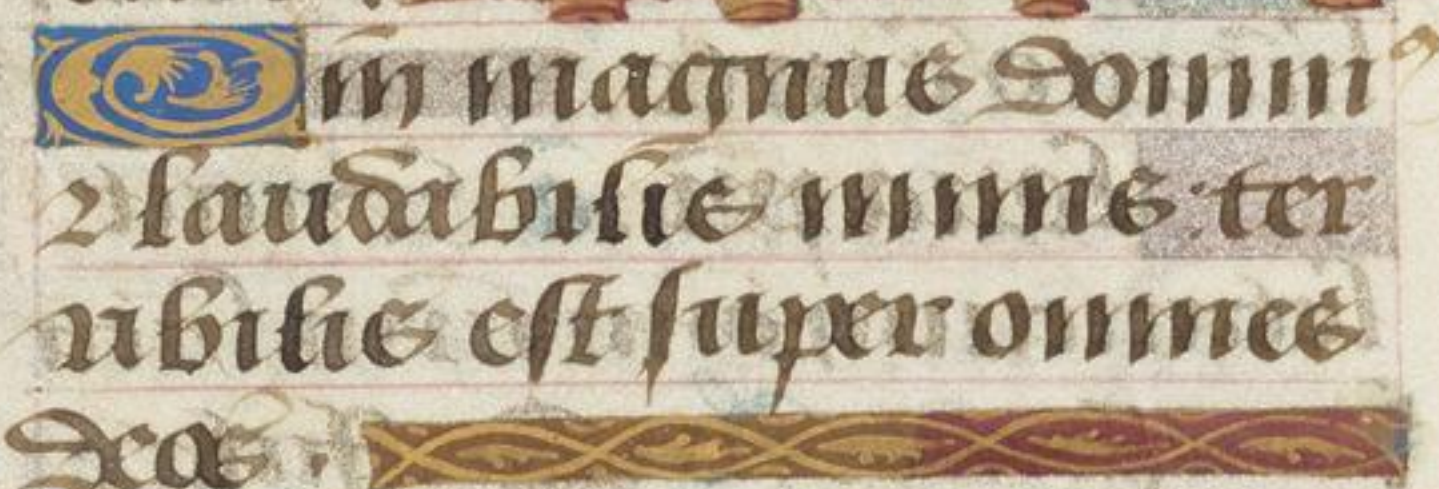 Qm̄ magnus domin⁹
⁊ laudabilis nimis · ter
ribilis est super omnes
deos .